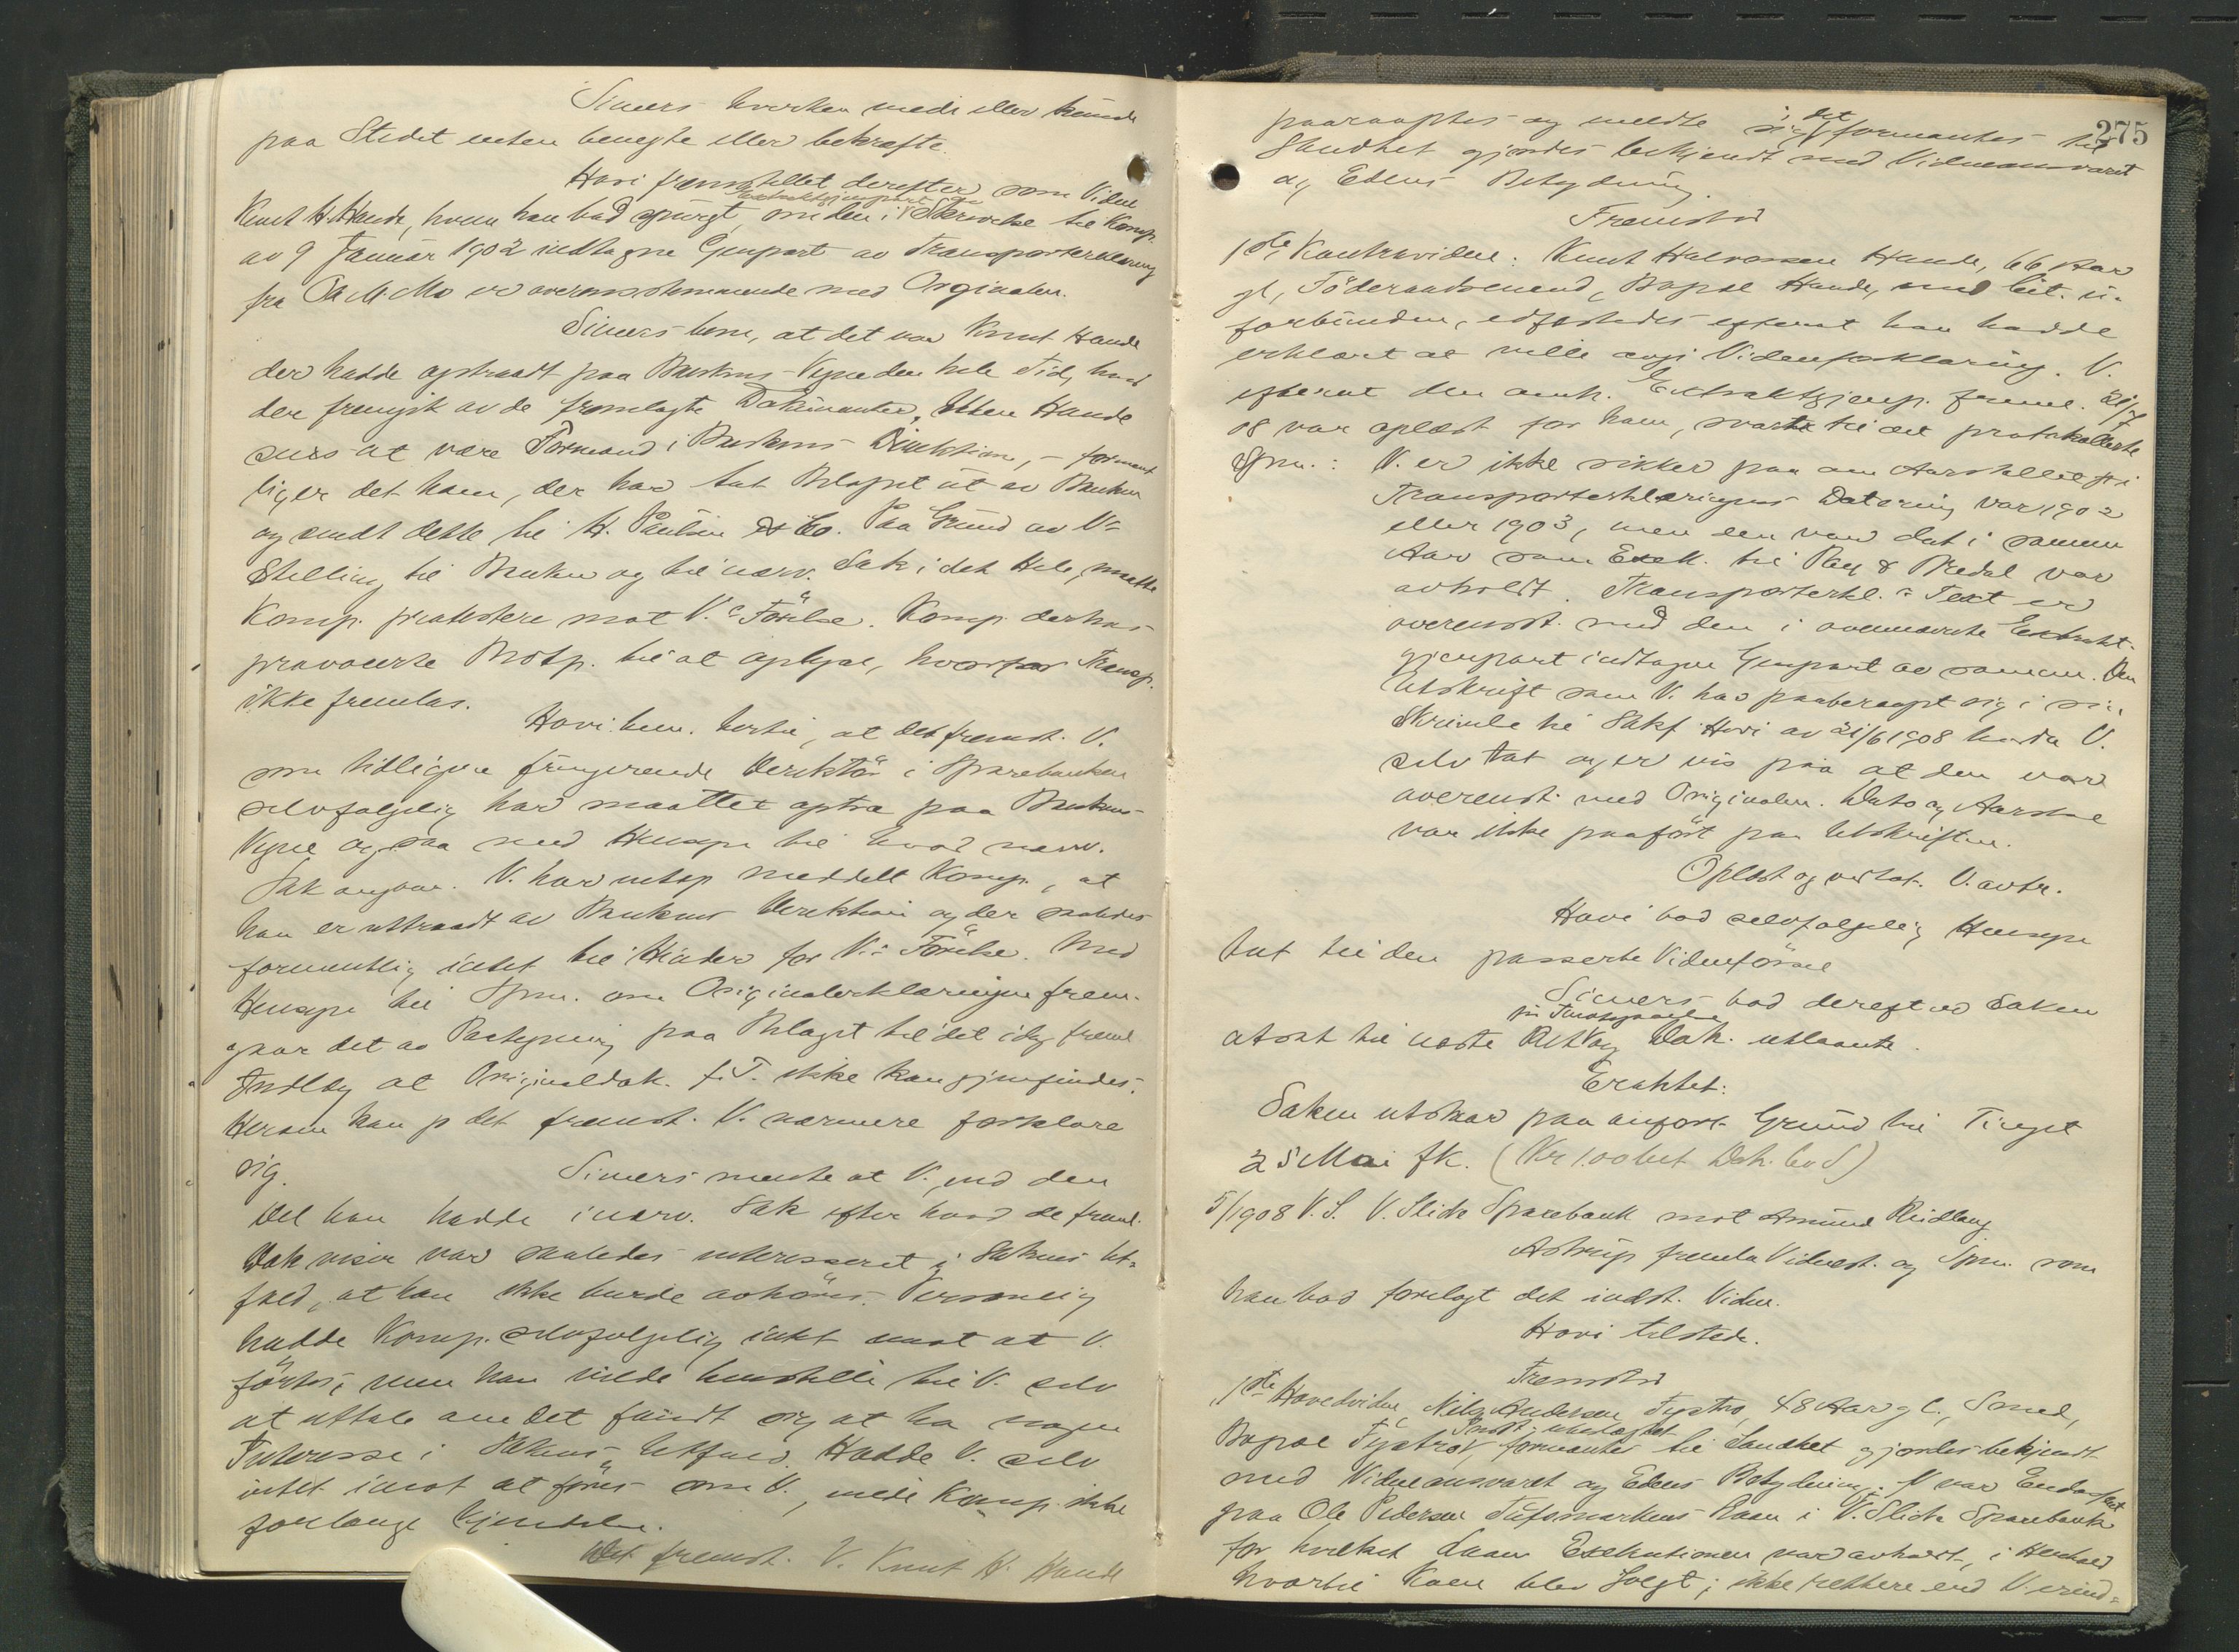 Sivers hverken vilde eller kunde
paa Stedet enten benegte eller bekræfte.
Hovi fremstillet derefter som Vidne
Extraktgjenpart
Knut H. Hande, hvem han bad spurgt, om den i Skrivelse til Komp.
av 9 Januar 1902 indtagne Genpart av Transporterklæring
fra Ole M. Mo er overensstemmende med Orginalen.
Sivers bem., at det var Knut Hande
der hadde optraadt paa Bankens Vegne den hele Tid, hvad
der fremgik av de fremlagte Dokumenter. Etter Hande
sees at være Formand i Bankens Direktion, – forment
lig er det ham, der har tat Beløpet ut av Banken
og sendt dette til H. Paulsen & Co. Paa Grund av V's
Stilling til Banken og til nærv. Sak i det Hele, maatte
Komp. protestere mot V.s Förelse. Komp. derhos
provocerte Motp. til at oplyse, hvorfor Transp.
ikke fremlas.
Hovi bem. hertil, at det fremst. V.
som tidligere fungerende Direktör i Sparebanken
selvfølgelig har maattet optræ paa Bankens
Vegne ogsaa med Hensyn til hvad nærv.
Sak angaar. V. har netop meddelt Komp., at
han er uttraadt av Bankens Direktion og der saaledes
formentlig intet til Hinder for V's Förelse. Med
Hensyn til Spm. om Originalerklæringen frem-
gaar det av Paategning paa Bilaget til det idag freml.
Indlæg at Originaldok. f. T. ikke kan gjenfindes.
Herom kan jo det fremst. V. nærmere forklare
sig.
Sivers mente at V., ved den
Del han hadde i nærv. Sak efter hvad de freml.
Dok viser var saaledes interesseret i Sakens Ut-
fald, at han ikke burde avhöres. Personlig
hadde Komp. selvfølgelig intet imot at V.
förtes, men han vilde henstille til V. selv
at uttale om det fandt sig at ha nogen
Interesse i Sakens Utfald. Hadde V. selv
intet imot at föres som V., vilde Komp. ikke
forlange Kjendelse.
Det fremst. V. Knut H. Hande
275
paaraaptes og meldte sig, det formantes til
Sandhet gjordes bekjendt med Vidneansvaret
og Edens Betydning.
Fremstod
1ste Kontravidne: Knut Halvorsen Hande, 66 Aar
gl., Föderaadsmand, Bopæl Hande, med Cit. u-
forbunden, edfæstedes efterat han hadde
erklært at ville avgi Vidneforklaring. V.
efterat den omh. Extraktgjenp. freml. 21/7
08 var oplæst for ham, svarte til det protokollerte
Spm.: V. er ikke sikker paa om Aarstallet i
Transporterklæringens Datering var 1902
eller 1903, men den var dat i samme
Aar som Exek. til Ray & Bredal var
avholdt. Transporterkl.s Text er
overensst. med den i ovennævnte Extrakt-
gjenpart indtagne Genpart av samme. Den
Utskrift som V. har paaberaapt sig i sin
Skrivelse til Sakf. Hovi av 21/6 1908 hadde V.
selv tat og er vis paa at den var
overensst. med Originalen. Dato og Aarstal
var ikke paaført paa Utskriften.
Oplæst og vedtat. V. avtr.
Hovi bad selvfølgelig Hensyn
tat til den passerte Vidneförsel
Sivers bad derefter Saken
til Imotegaaelse
utsat til næste Ret og Dok. utlaante.
Eraktet:
Saken utstaar paa anført Grund til Tinget
25 Mai fk. (Kr 1.00 bet Dok. lev S)
5/1908 V.S. V. Slidre Sparebank mot Amund Reidlang
Astrup fremla Vidnest. og Spm. som
han bad forelagt det indst. Vidne.
Hovi tilstede.
Fremstod
1ste Hovedvidne, Nils Andersen Tystro, 48 Aar gl., Smed,
Bopæl Tystro, formantes til Sandhet gjordes bekjendt
med Vidneansvaret og Edens Betydning. V. var
paa Ole Pedersen Tufsmarkens Laan i V. Slidre Sparebank
for hvilket Laan Exekutionen var avholdt, i Henhold
hvortil Koen blev solgt; ikke rettere end V. erind-